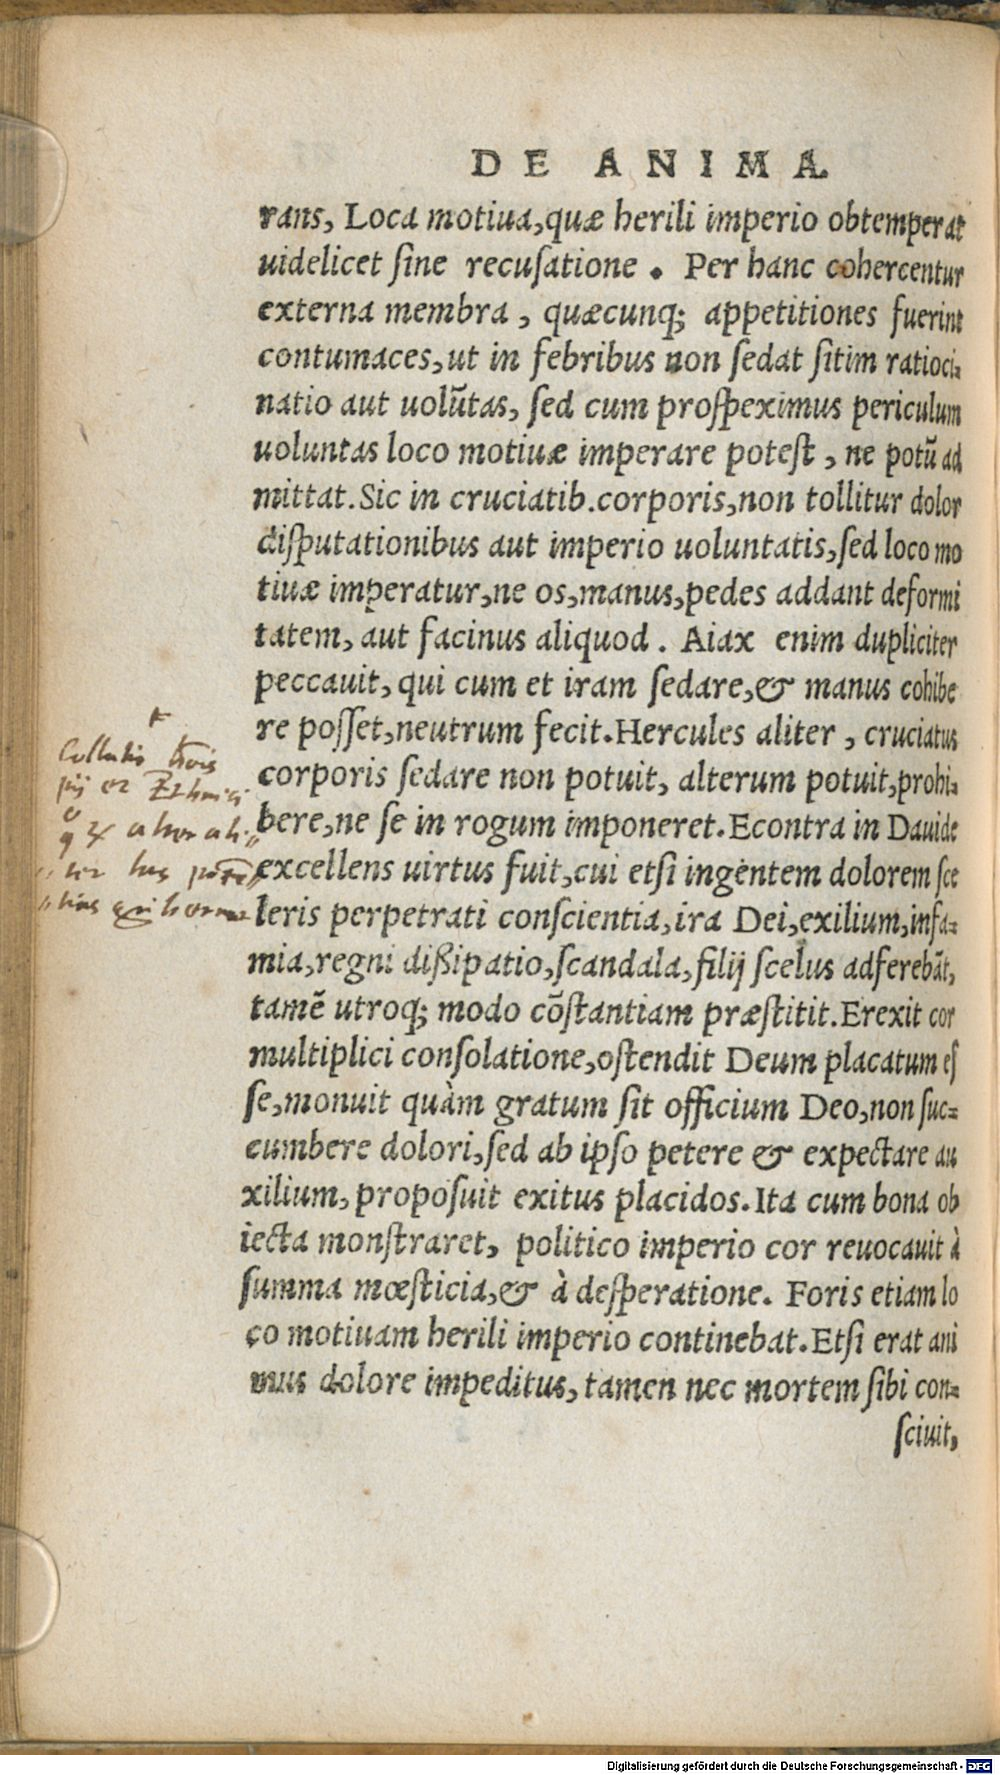 DE ANIMA.
rans, Loca motiua, quæ herili imperio obtemperat
uidelicet sine recusatione. Per hanc cohercentur
externa membra, quæcunq; appetitiones fuerint
contumaces, ut in febribus non sedat sitim ratioci-
natio aut uolũtas, sed cum prospeximus periculum
uoluntas loco motiuæ imperare potest, ne potũ ad
mittat. Sic in cruciatib. corporis, non tollitur dolor
disputationibus aut imperio uoluntatis, sed loco mo
tiuæ imperatur, ne os, manus, pedes addant deformi
tatem, aut facinus aliquod. Aiax enim dupliciter
peccauit, qui cum et iram sedare, & manus cohibe
re posset, neutrum fecit. Hercules aliter, cruciatus
corporis sedare non potuit, alterum potuit, prohi-
bere, ne se in rogum imponeret. Econtra in Dauide
excellens uirtus fuit, cui etsi ingentem dolorem sce
leris perpetrati conscientia, ira Dei, exilium, infa-
mia, regni dißipatio, scandala, filij scelus adferebãt,
tamẽ utroq; modo cõstantiam præstitit. Erexit cor
multiplici consolatione, ostendit Deum placatum es
se, monuit quàm gratum sit officium Deo, non suc-
cumbere dolori, sed ab ipso petere & expectare au
xilium, proposuit exitus placidos. Ita cum bona ob
iecta monstraret, politico imperio cor reuocauit à
summa mœsticia, & à desperatione. Foris etiam lo
co motiuam herili imperio continebat. Etsi erat ani
mus dolore impeditus, tamen nec mortem sibi con-
sciuit,
pij et Ethnici
Digitalisierung gefördert durch die Deutsche Forschungsgemeinschaft - DFG